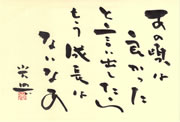 あの頃は
良かった
と言い出したら
もう成長は
ないなあ